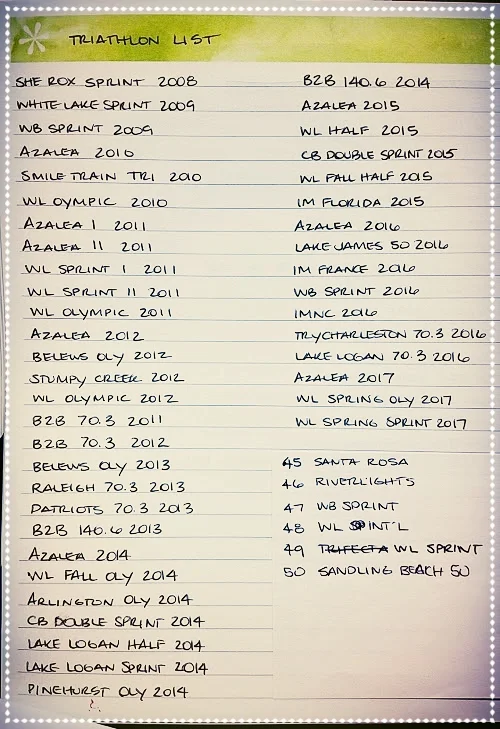 TRIATHLON LIST
SHE ROX SPRINT 2008
WHITE LAKE SPRINT 2009
WB SPRINT 2009
AZALEA 2010
SMILE TRAIN TRI 2010
WL OYMPIC 2010
AZALEA I 2011
AZALEA II 2011
WL SPRINT I 2011
WL SPRINT II 2011
WL OLYMPIC 2011
AZALEA 2012
BELEWS OLY 2012
STUMPY CREEK 2012
WL OLYMPIC 2012
B2B 70.3 2011
B2B 70.3 2012
BELEWS OLY 2013
RALEIGH 70.3 2013
PATRIOTS 70.3 2013
B2B 140.6 2013
AZALEA 2014
WL FALL OLY 2014
ARLINGTON OLY 2014
CB DOUBLE SPRINT 2014
LAKE LOGAN HALF 2014
LAKE LOGAN SPRINT 2014
PINEHURST OLY 2014
B2B 140.6 2014
AZALEA 2015
WL HALF 2015
CB DOUBLE SPRINT 2015
WL FALL HALF 2015
IM FLORIDA 2015
AZALEA 2016
LAKE JAMES 50 2016
IM FRANCE 2016
WB SPRINT 2016
IMNC 2016
TRYCHARLESTON 70.3 2016
LAKE LOGAN 70.3 2016
AZALEA 2017
WL SPRING OLY 2017
WL SPRING SPRINT 2017
45 SANTA ROSA
46 RIVERLIGHTS
47 WB SPRINT
48 WL INT'L
49 TRIFECTA WL SPRINT
50 SANDLING BEACH 50